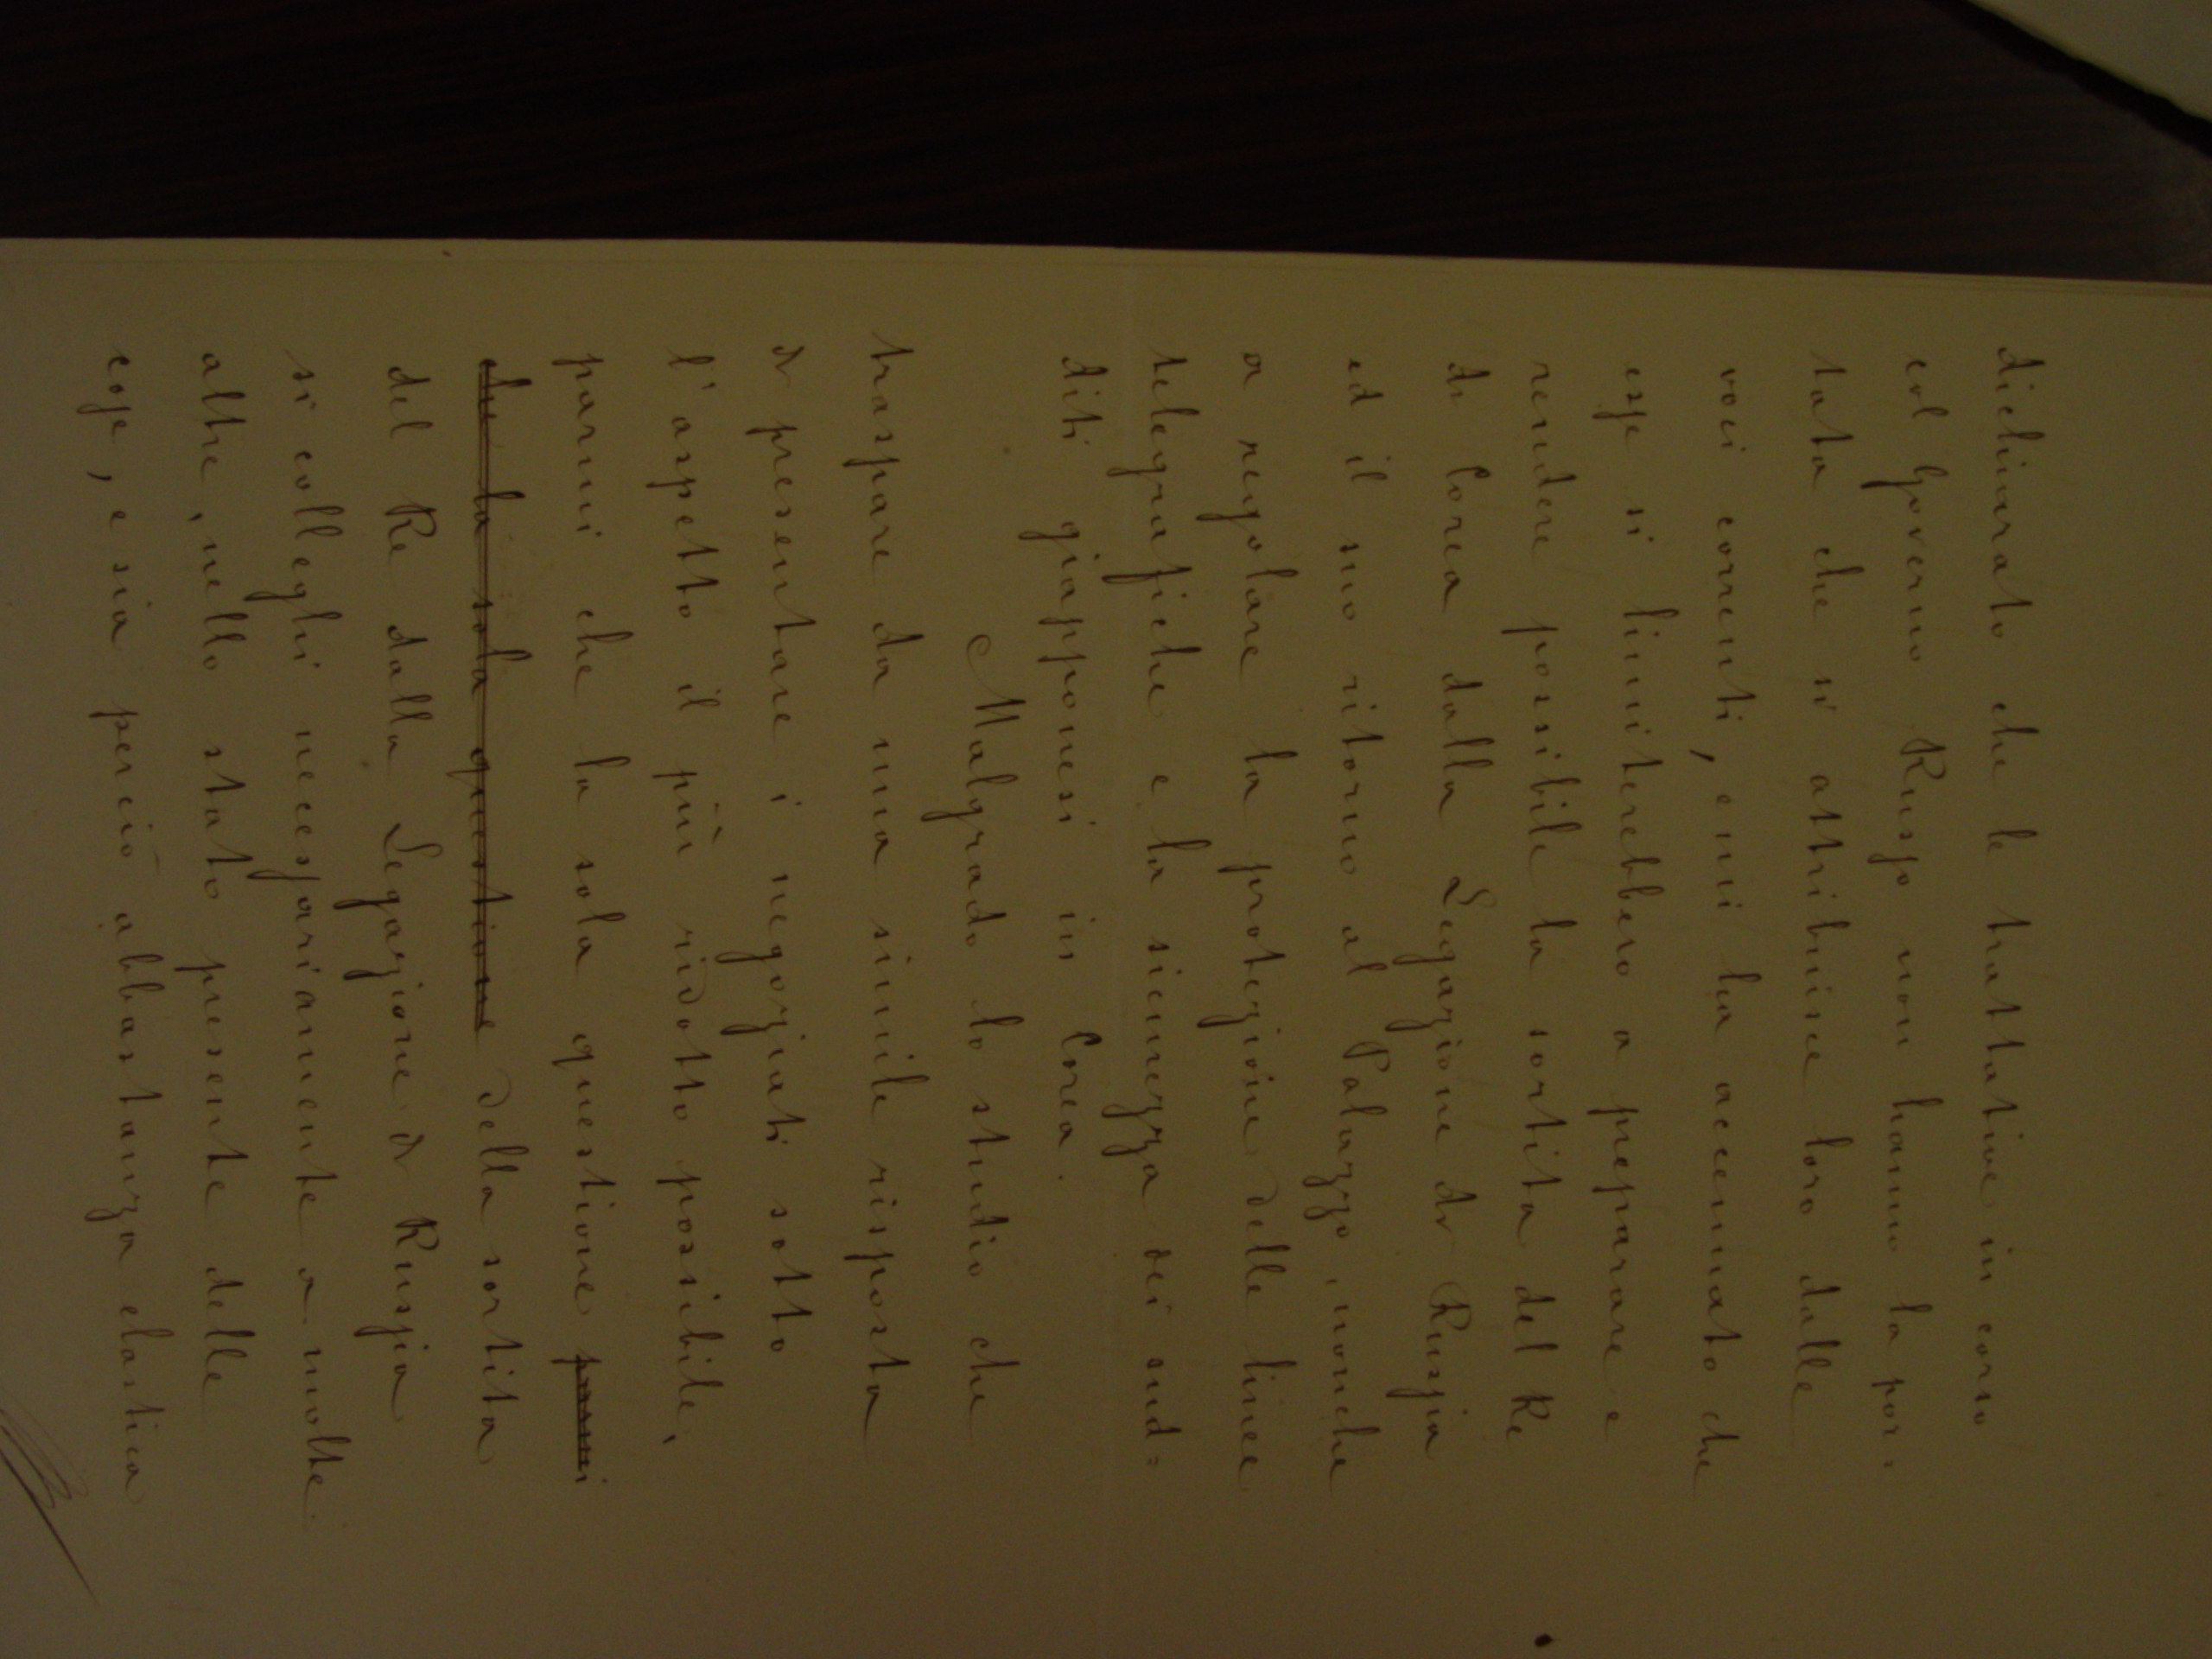 dichiarato che le trattative in corso
col Governo Russo non hanno la por-
tata che si attribuisce loro dalle
voci correnti, e mi ha accennato che
esse si limiterebbero a preparare e
rendere possibile la sortita del Re
di Corea dalla Legazione di Russia
ed il suo ritorno al Palazzo, nonche
a regolare la protezione delle linee
telegrafiche e la sicurezza dei sud=
diti giapponesi in Corea.
Malgrado lo studio che
traspare da una simile risposta
di presentare i negoziati sotto
l'aspetto il più ridotto possibile,
parmi che la sola questione parmi
che la sola questione della sortita
del Re dalla Legazione di Russia
si colleghi necessariamente a molte
altre, nello stato presente delle
cose, e sia perciò abbastanza elastica